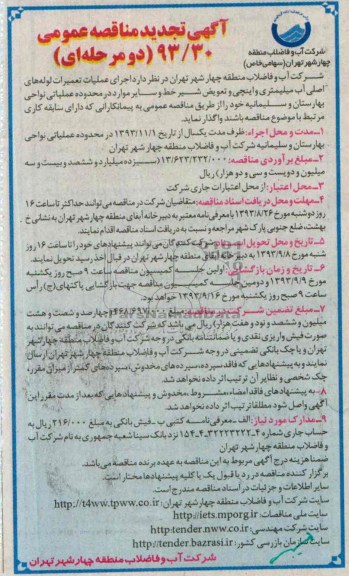 آگهی تجدید مناقصه عمومی
۹۳/۳۰ (دو مرحله‌ای)
شرکت آب و فاضلاب منطقه
چهار شهر تهران (سهامی خاص)
شرکت آب و فاضلاب منطقه چهار شهر تهران در نظر دارد اجرای عملیات تعمیرات لوله‌های
اصلی آب میلیمتری و اینچی و تعویض شیر خط و سایر موارد در محدوده عملیاتی نواحی
بهارستان و سلیمانیه خود را از طریق مناقصه عمومی به پیمانکارانی که دارای سابقه کاری
مرتبط با موضوع مناقصه باشند واگذار نماید.
۱ـ مدت و محل اجراء: ظرف مدت یکسال از تاریخ ۱۳۹۳/۱۱/۱ در محدوده عملیاتی نواحی
بهارستان و سلیمانیه شرکت آب و فاضلاب منطقه چهار شهر تهران
۲ـ مبلغ برآوردی مناقصه: ۱۳/۶۲۲/۲۳۲/۰۰۰ (سیزده میلیارد و ششصد و بیست و سه
میلیون و دویست و سی و دو هزار) ریال
۳ـ محل اعتبار: از محل اعتبارات جاری شرکت
۴ـ مهلت و محل دریافت اسناد مناقصه: متقاضیان شرکت در مناقصه می‌توانند حداکثر تا ساعت ۱۶
روز دوشنبه مورخ ۱۳۹۳/۸/۲۶ با معرفی‌نامه معتبر به دبیرخانه آبفای منطقه چهار شهر تهران به نشانی خ
بهشت، ضلع جنوبی پارک شهر مراجعه و نسبت به دریافت اسناد مناقصه اقدام نمایند.
۵ـ تاریخ و محل تحویل اسناد: شرکت کنندگان می‌توانند پیشنهادهای خود را تا ساعت ۱۶ روز
شنبه مورخ ۱۳۹۳/۹/۸ به دبیرخانه آبفای منطقه چهار شهر تهران در قبال اخذ رسید تحویل نمایند.
۶ـ تاریخ و زمان بازگشایی: اولین جلسه کمیسیون مناقصه ساعت ۹ صبح روز یکشنبه
مورخ ۱۳۹۳/۹/۹ و دومین جلسه کمیسیون مناقصه جهت بازگشایی پاکتهای (ج) رأس
ساعت ۹ صبح روز یکشنبه مورخ ۱۳۹۳/۹/۱۶ خواهد بود.
۷ـ مبلغ تضمین شرکت در مناقصه: مبلغ (چهارصد و شصت و هشت
میلیون و ششصد و نود و هفت هزار) ریال می باشد که شرکت کنندگان در مناقصه می توانند به
صورت فیش واریزی نقدی و یا ضمانتنامه بانکی در وجه شرکت آب و فاضلاب منطقه چهار شهر
تهران و یا چک بانکی تضمینی در وجه شرکت آب و فاضلاب منطقه چهار شهر تهران ارسال
نمایند و به پیشنهادهایی که فاقد سپرده، سپرده‌های مخدوش، سپرده‌های کمتر از میزان مقرره
چک شخصی و نظایر آن ترتیب اثر داده نخواهد شد.
۸ـ به پیشنهادهای فاقد امضاء، مشروط، مخدوش و پیشنهادهایی که بعد از مدت مقرر این
آگهی واصل شود مطلقا ترتیب اثر داده نخواهد شد.
۹ـ مدارک مورد نیاز: الف ـ معرفی‌نامه کتبی ب ـ فیش بانکی به مبلغ ۲۱۶/۰۰۰ ریال به
حساب جاری شماره نزد بانک سینا شعبه جمهوری به نام شرکت آب
و فاضلاب منطقه چهار شهر تهران
ضمنا هزینه درج آگهی مربوط به این مناقصه به عهده برنده مناقصه می‌باشد.
برگزار کننده مناقصه در رد یا قبول یک یا کلیه پیشنهادها مختار است.
سایر اطلاعات و جزئیات در اسناد مناقصه مندرج است.
سایت شرکت آب و فاضلاب منطقه چهار شهر تهران: http://t4ww.tpww.co.ir
سایت ملی مناقصات: http://iets.mporg.ir
سایت شرکت مهندسی: http:tender.nww.co.ir
سایت سازمان بازرسی کشور: http://tender.bazrasi.ir
شرکت آب و فاضلاب منطقه چهار شهر تهران